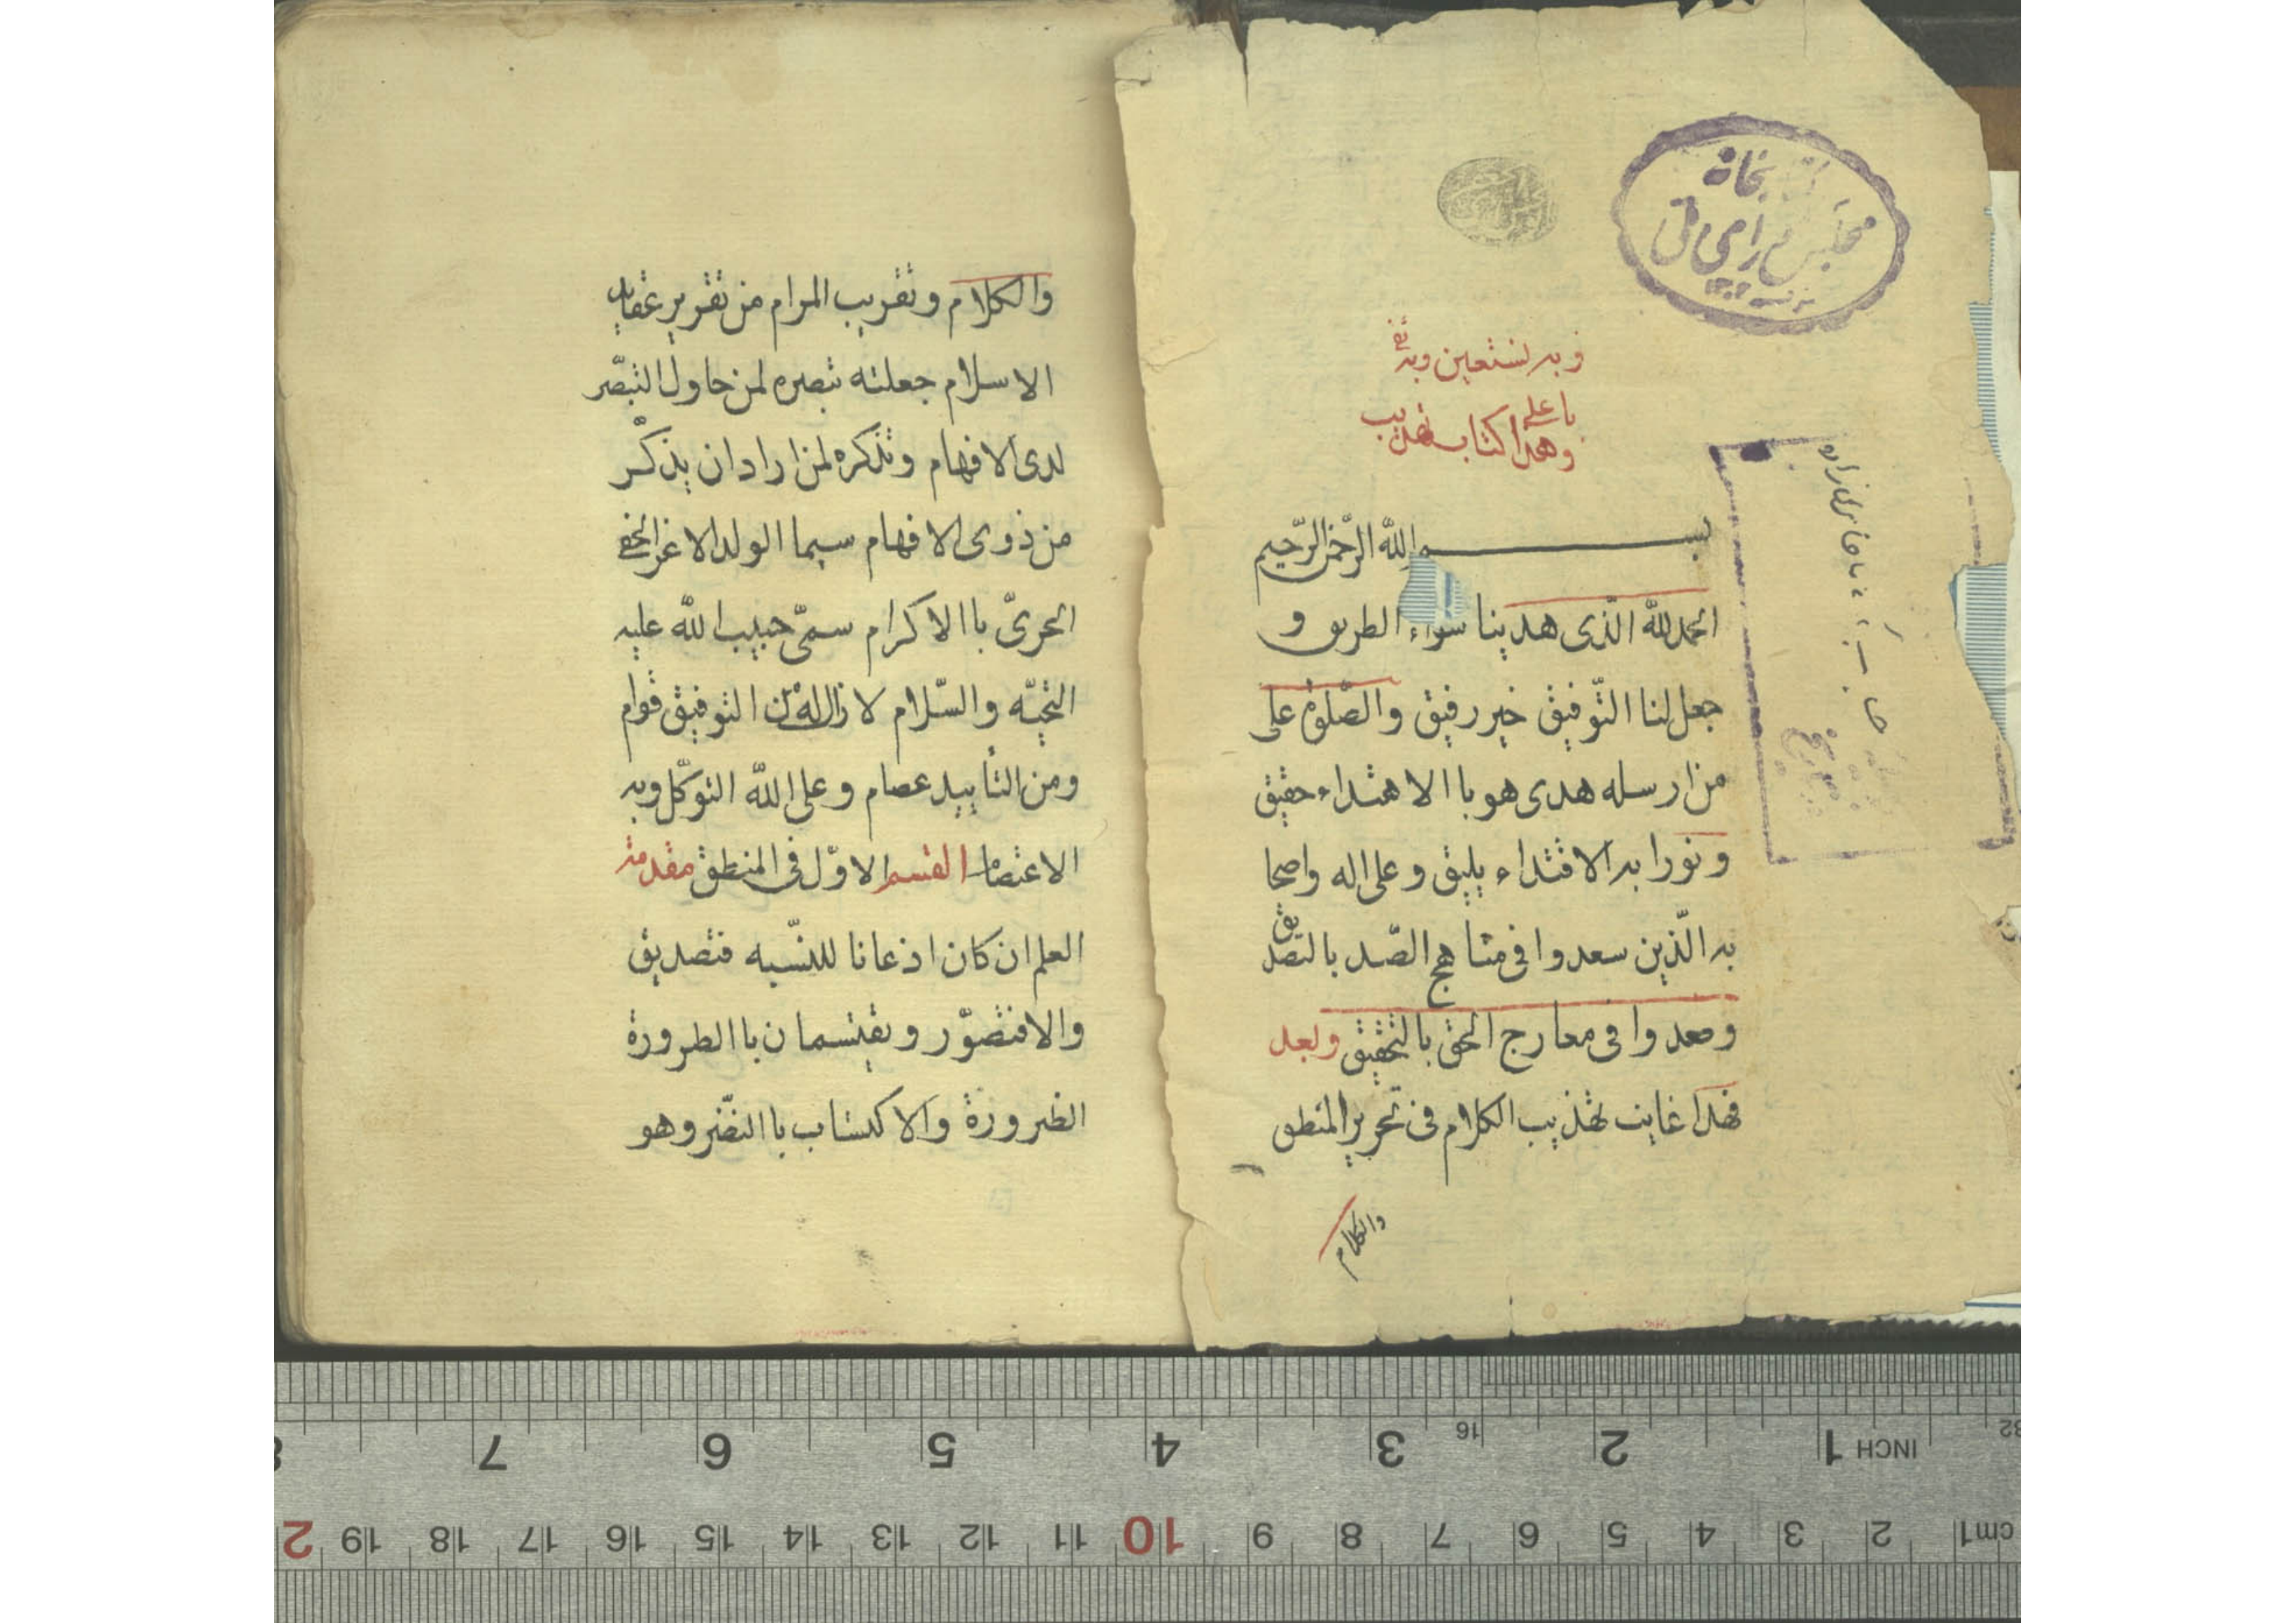 کتابخانه
مجلس شورای ملی
وبه نستعین وبه ثقی
یا علی
وهذا کتاب تهذیب
بسم الله الرّحمن الرّحیم
الحمد لله الّذی هدینا سواء الطریق و
جعل لنا التّوفیق خیر رفیق والصّلوة علی
من ارسله هدی هو باالاهتداء حقیق
و نورا به الاقتداء یلیق و علی اله واصحا
به الّذین سعدوا فی مناهج الصّدق بالتصدیق
وصعدوا فی معارج الحق بالتحقیق وبعد
فهذا غایت تهذیب الکلام فی تحریر المنطق
والکلام
والکلام وتقریب المرام من تقریر عقاید
الاسلام جعلته تبصره لمن حاول التبصّر
لدی الافهام وتذکره لمن اراد ان یذکّر
من ذوی الافهام سیما الولد الاعز الحفی
الحریّ باالاکرام سمیّ حبیب اللّه علیه
التحیّه والسّلام لا زال له من التوفیق قوام
ومن التأیید عصام وعلی اللّه التوکّل وبه
الاعتصام القسم الاوّل فی المنطق مقدمة
العلم ان کان اذعانا للنّسبه فتصدیق
والا فتصوّر ویقتسمان باالطرورة
الضرورة والاکتساب باالنّضر وهو
INCH 1 2 3 4 5 6 7 8
16 32
cm 1 2 3 4 5 6 7 8 9 10 11 12 13 14 15 16 17 18 19 2